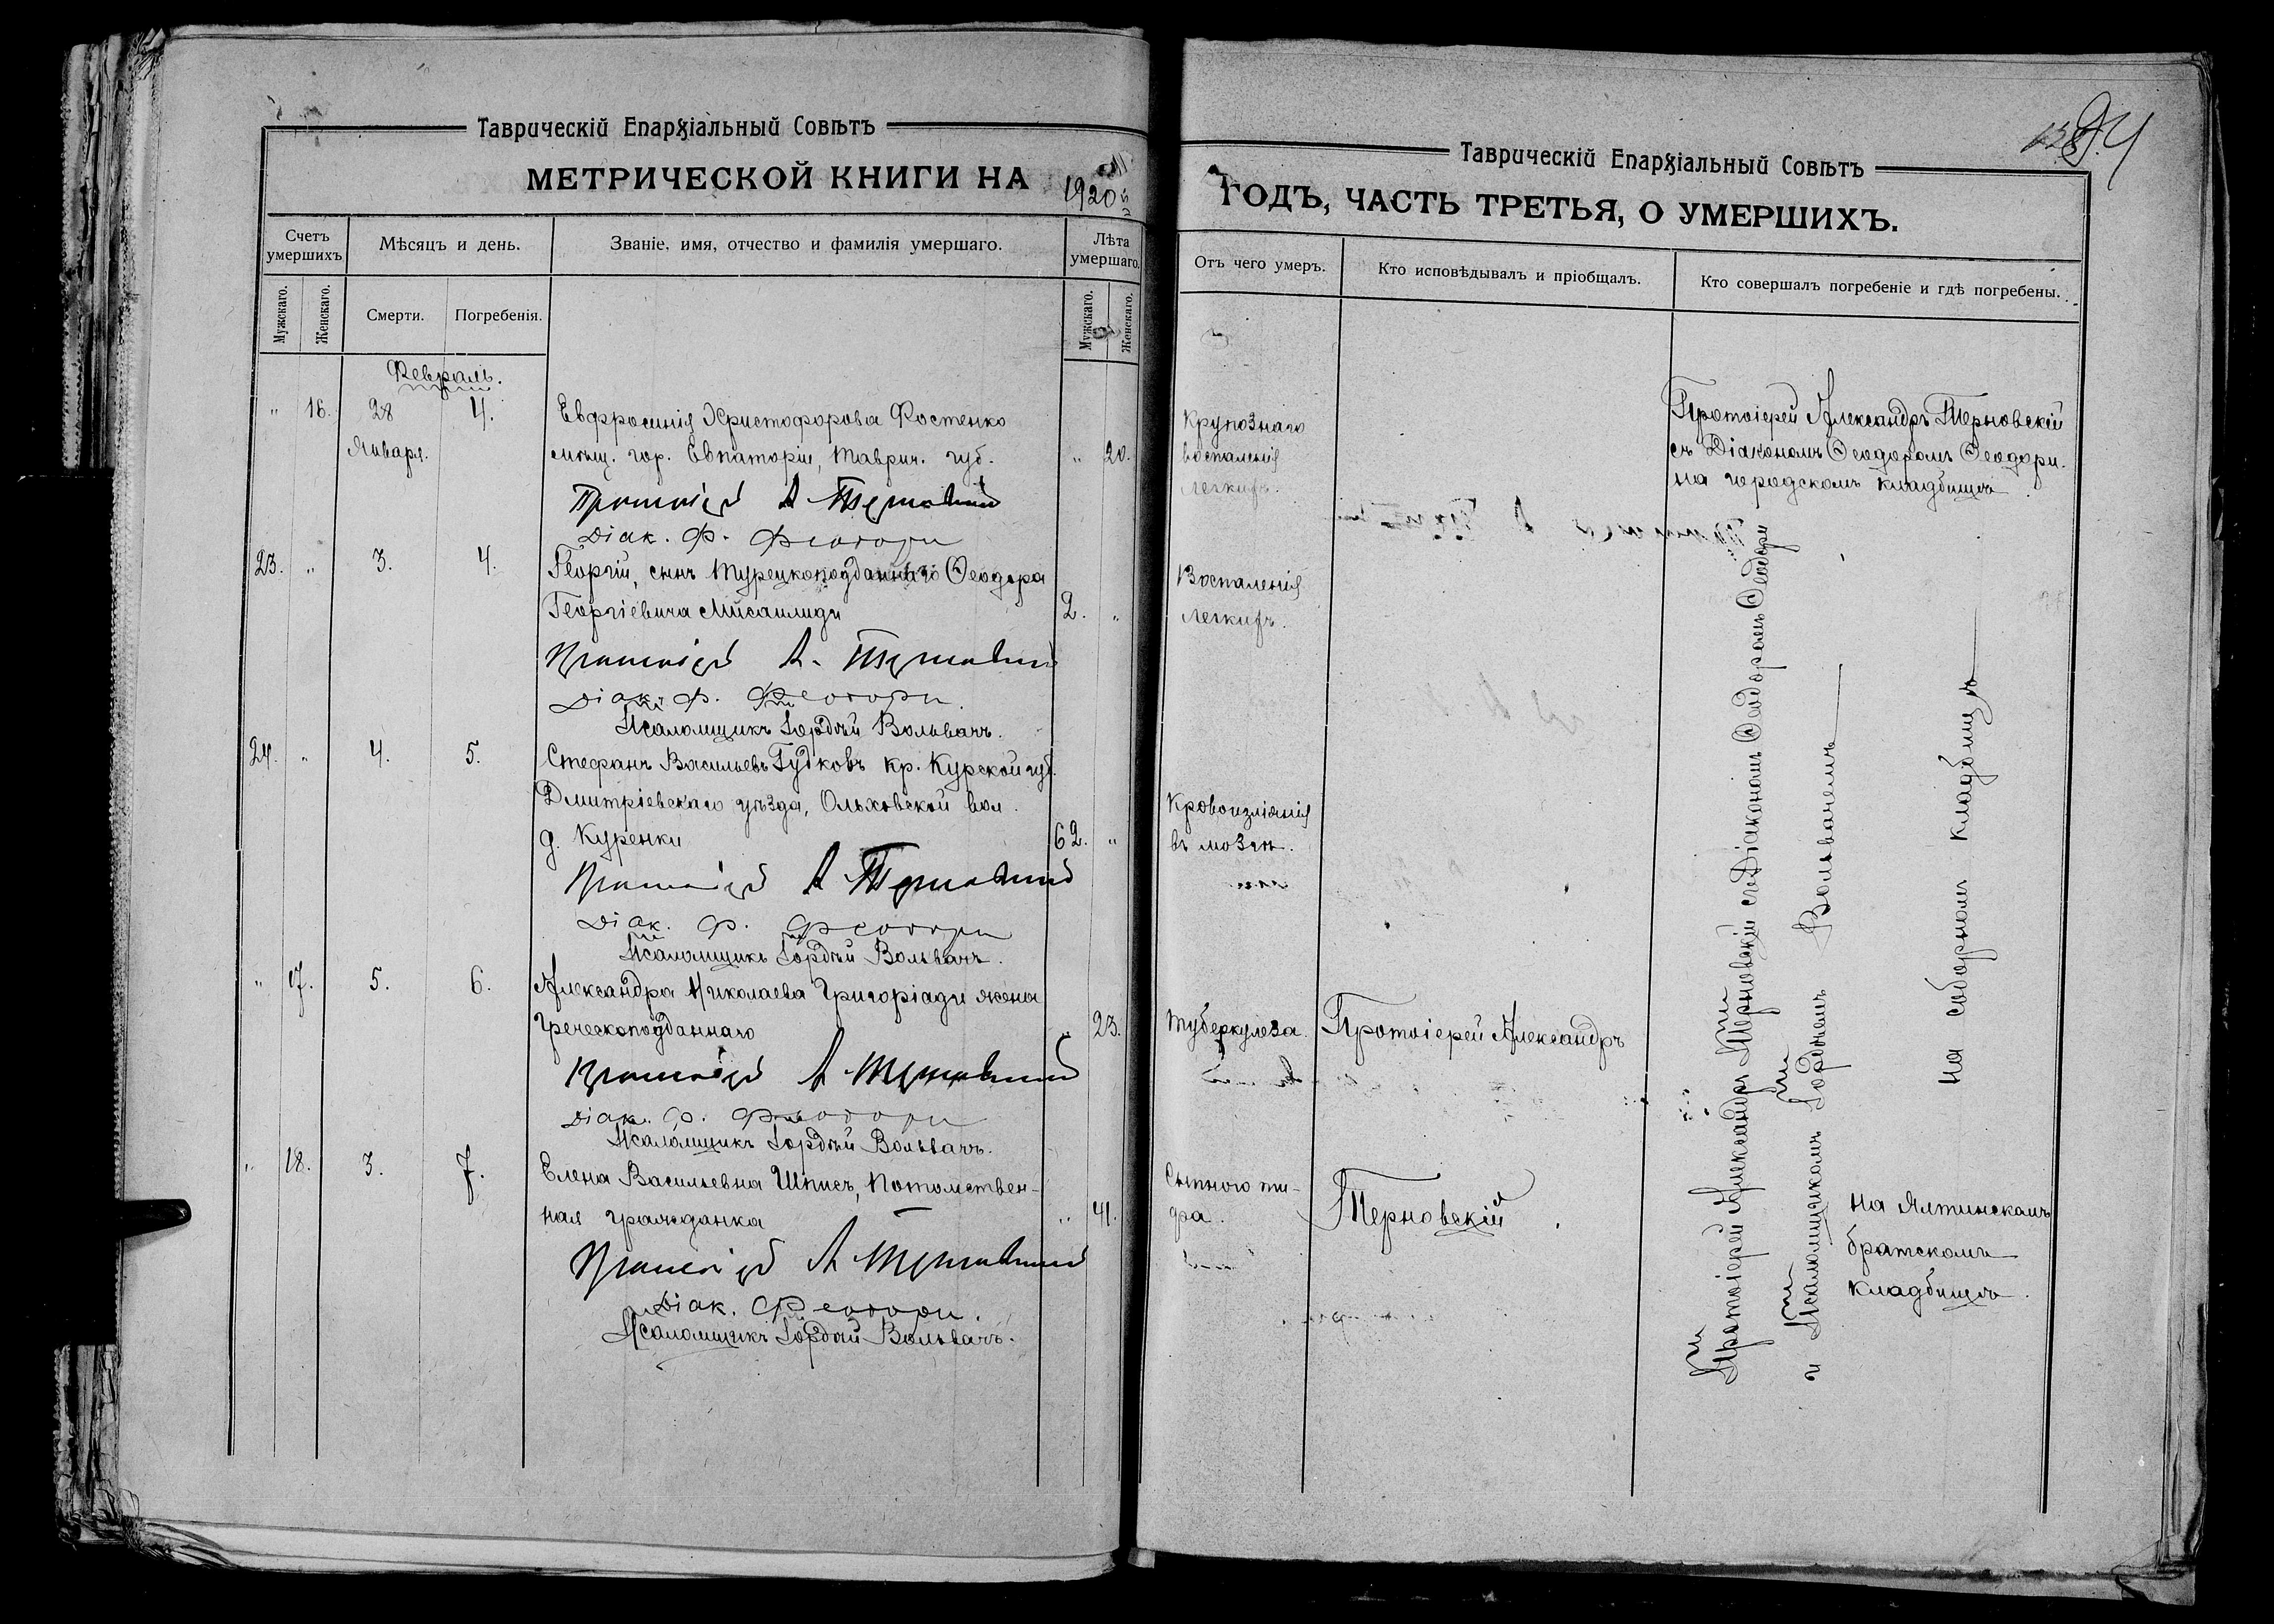 Таврическій Епархіальный Совѣтъ
МЕТРИЧЕСКОЙ КНИГИ НА 1920
Счетъ умершихъ
Мѣсяцъ и день.
Званіе, имя, отчество и фамилія умершаго.
Лѣта умершаго.
Мужскаго.
Женскаго.
Смерти.
Погребенія.
Мужскаго.
Женскаго.
Февраль.
" 16. 28 4. Евфросинія Христофорова Костенко
Января. мѣщ. гор. Евпаторіи, Таврич. губ. " 20.
Протоіерей А Терновскій
Діак. Ф. Феодори
23. " 3. 4. Георгій, сынъ Турецкоподданнаго Ѳеодора
Георгіевича Мисаилиди 2. "
Протоіерей А. Терновскій
Діак. Ф. Феодори.
Псаломщикъ Гордѣй Вольвачъ.
24. " 4. 5. Стефанъ Васильевъ Гудковъ кр. Курской губ.
Дмитріевскаго уѣзда, Ольховской вол.
д. Куренки 62. "
Протоіерей А Терновскій
Діак. Ф. Феодори
Псаломщикъ Гордѣй Вольвачъ.
" 17. 5. 6. Александра Николаева Григоріади жена
Греческоподданнаго " 23.
Протоіерей А Терновскій
Діак. Ф. Феодори
Псаломщикъ Гордѣй Вольвачъ.
" 18. 3. 7. Елена Васильевна Шписъ, Потомствен-
ная гражданка " 41.
Протоіерей А Терновскій
Діак. Феодори.
Псаломщикъ Гордѣй Вольвачъ.
Таврическій Епархіальный Совѣтъ
ГОДЪ, ЧАСТЬ ТРЕТЬЯ, О УМЕРШИХЪ.
Отъ чего умеръ.
Кто исповѣдывалъ и пріобщалъ.
Кто совершалъ погребеніе и гдѣ погребены.
Крупознаго
воспаленія
легкихъ.
Протоіерей Александръ Терновскій
съ Діакономъ Ѳеодоромъ Ѳеодори.
на городскомъ кладбищѣ.
Воспаленія
легкихъ.
Кровоизліянія
въ мозгъ.
Туберкулеза.
Протоіерей Александръ
Сыпного ти-
фа.
Терновскій
Протоіерей Александръ Терновскій съ Діакономъ Ѳеодоромъ Ѳеодори
и Псаломщикомъ Гордѣемъ Вольвачемъ
на соборномъ кладбищѣ
на Ялтинскомъ
братскомъ
кладбищѣ.